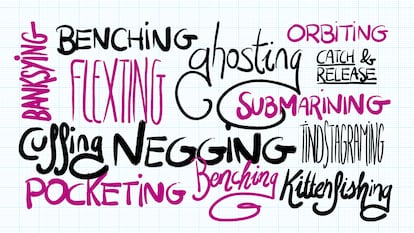 BANKSYING
BENCHING
FLEXTING
ghosting
ORBITING
CATCH &
RELEASE
SUBMARINING
Cuffing
NEGGING
TINDSTAGRAMING
POCKETING
Benching
Kittenfishing